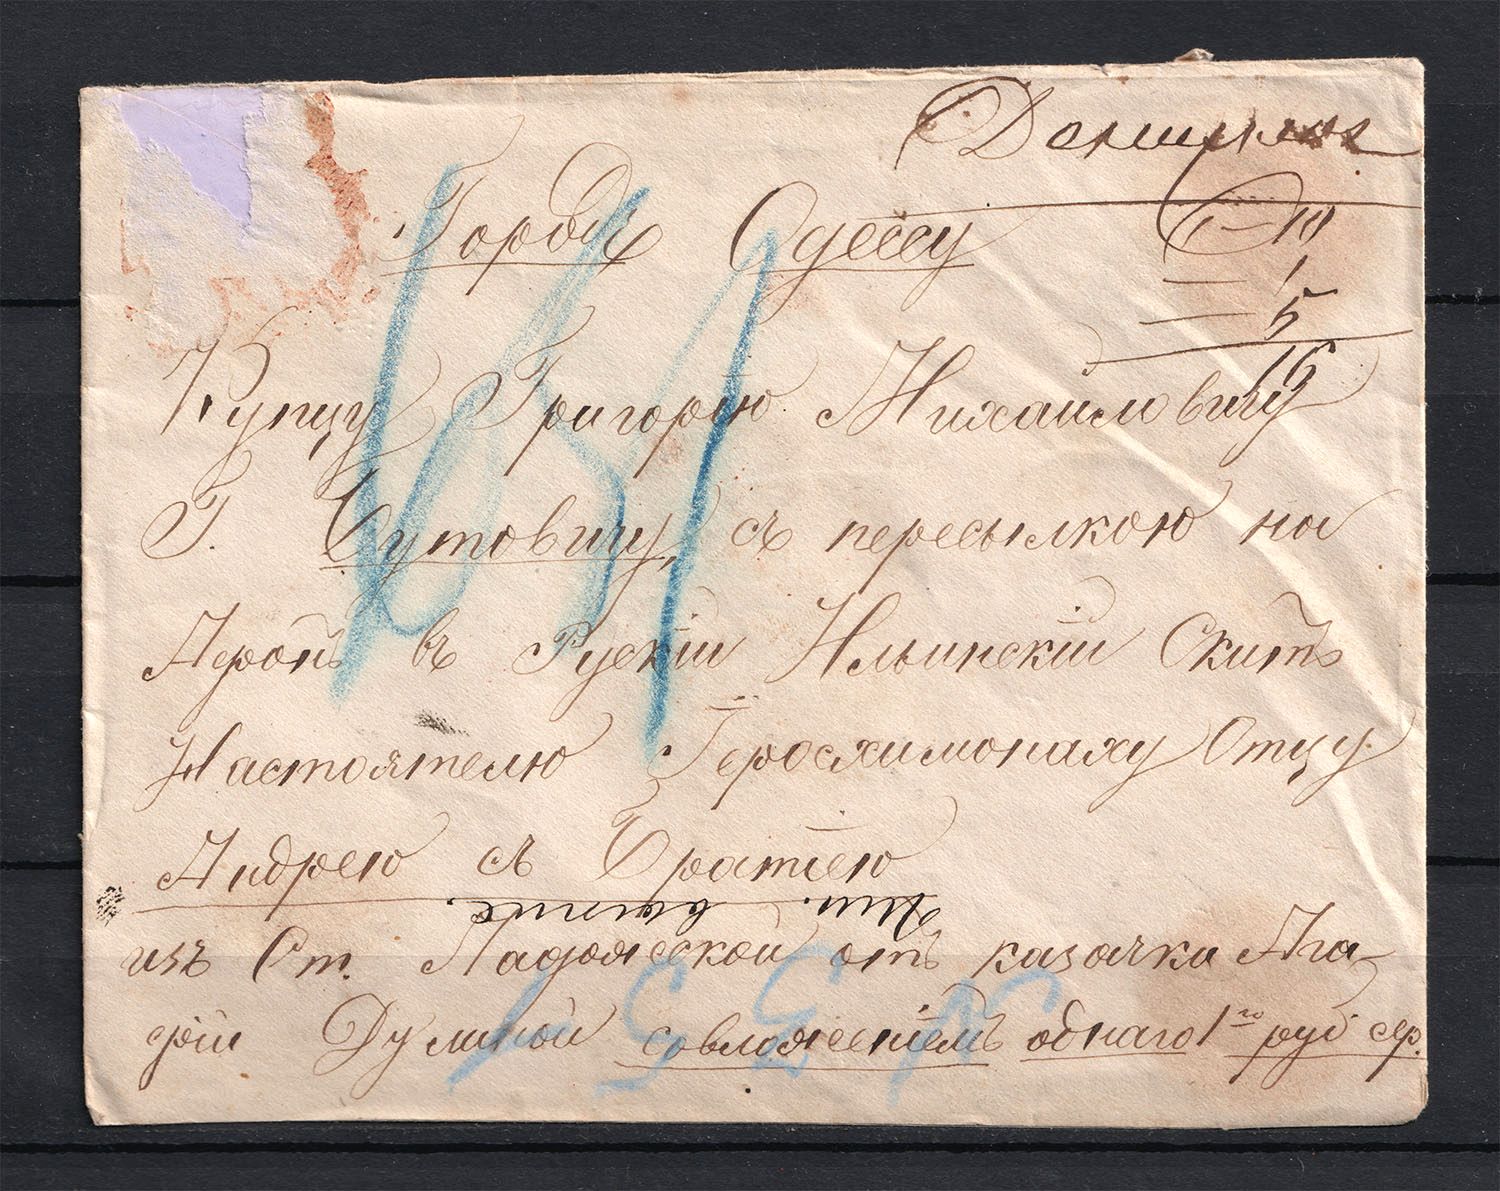 Денежное
1–10
1
5
16
Городъ Одессу
Купцу Григорію Михаиловичу
Г. Бутовичу, съ пересылкою на
Афонъ въ Рускіи Ильинскіи Скитъ
Настоятелю Іеросхимонаху Отцу
Андрею съ Братіею
изъ Ст. Ладожской отъ казачки Ага-
фіи Думиной совложеніемъ однаго 1го руб сер.